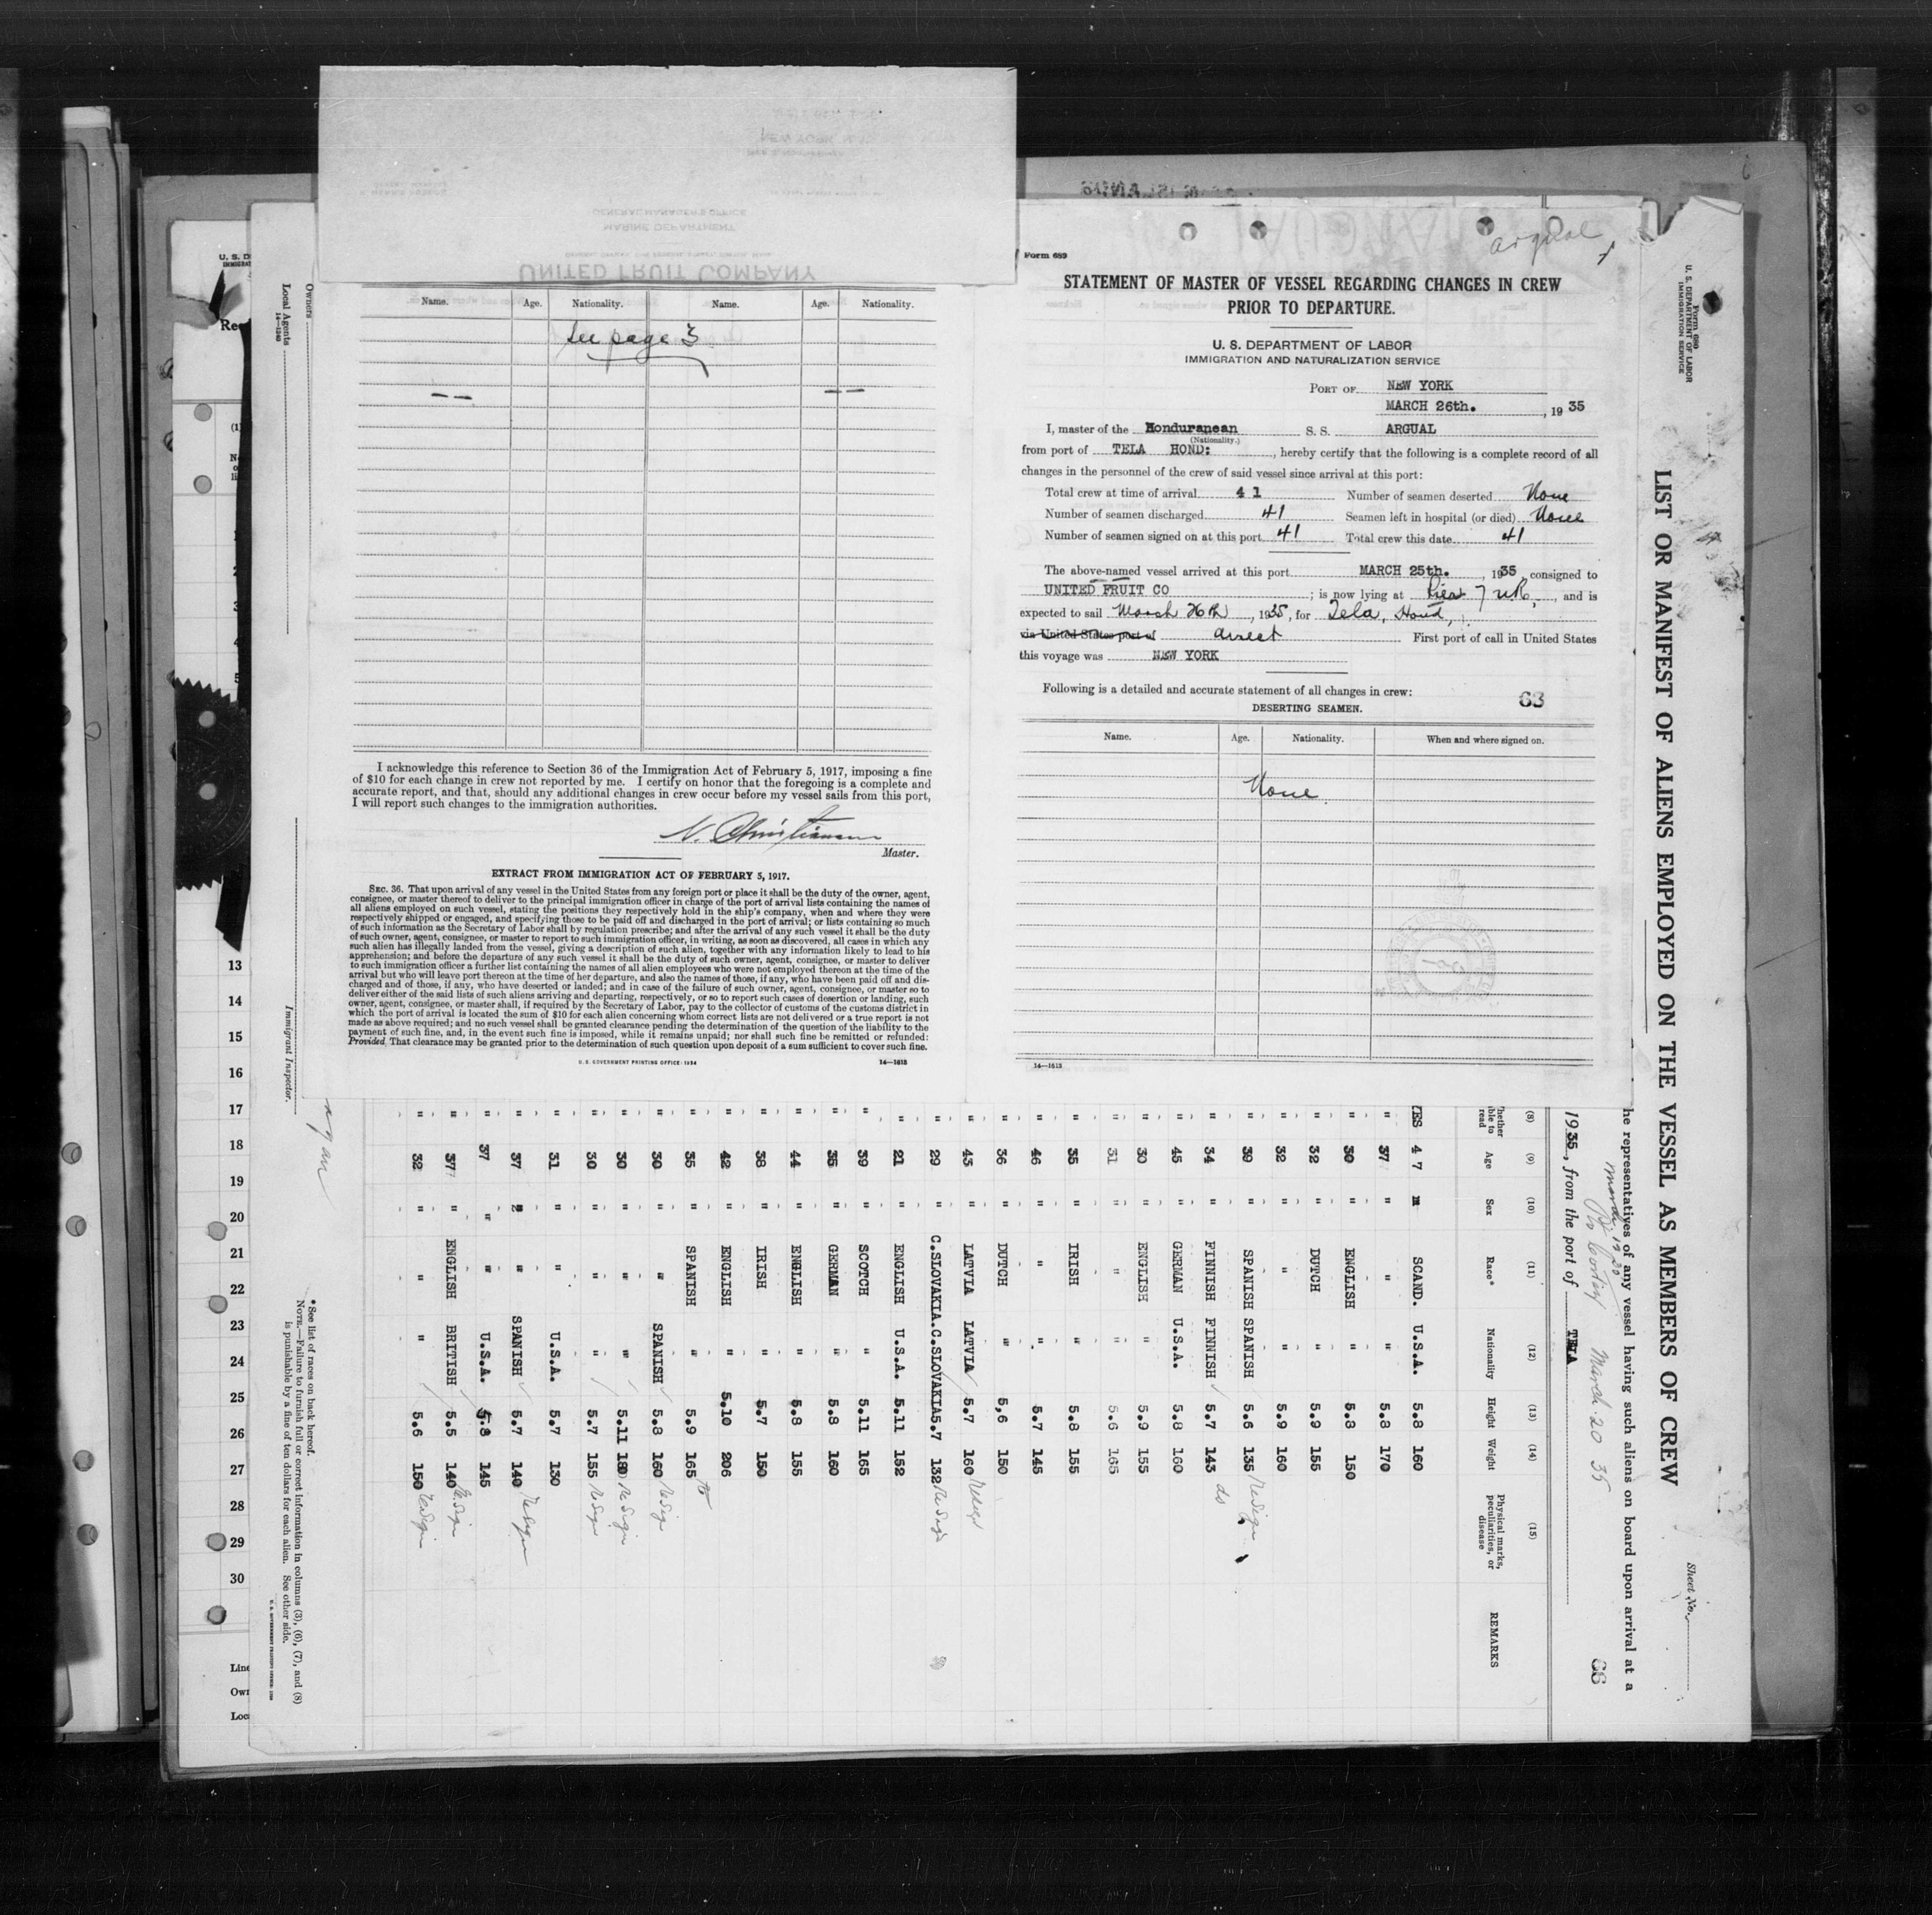 UNITED FRUIT COMPANY
MARINE DEPARTMENT
GENERAL MANAGER'S OFFICE
Name. Age. Nationality. Name. Age. Nationality.
See page 3
I acknowledge this reference to Section 36 of the Immigration Act of February 5, 1917, imposing a fine
of $10 for each change in crew not reported by me. I certify on honor that the foregoing is a complete and
accurate report, and that, should any additional changes in crew occur before my vessel sails from this port,
I will report such changes to the immigration authorities.
N. Christiansen
Master.
EXTRACT FROM IMMIGRATION ACT OF FEBRUARY 5, 1917.
SEC. 36. That upon arrival of any vessel in the United States from any foreign port or place it shall be the duty of the owner, agent,
consignee, or master thereof to deliver to the principal immigration officer in charge of the port of arrival lists containing the names of
all aliens employed on such vessel, stating the positions they respectively hold in the ship's company, when and where they were
respectively shipped or engaged, and specifying those to be paid off and discharged in the port of arrival; or lists containing so much
of such information as the Secretary of Labor shall by regulation prescribe; and after the arrival of any such vessel it shall be the duty
of such owner, agent, consignee, or master to report to such immigration officer, in writing, as soon as discovered, all cases in which any
such alien has illegally landed from the vessel, giving a description of such alien, together with any information likely to lead to his
apprehension; and before the departure of any such vessel it shall be the duty of such owner, agent, consignee, or master to deliver
to such immigration officer a further list containing the names of all alien employees who were not employed thereon at the time of the
arrival but who will leave port thereon at the time of her departure, and also the names of those, if any, who have been paid off and dis-
charged and of those, if any, who have deserted or landed; and in case of the failure of such owner, agent, consignee, or master so to
deliver either of the said lists of such aliens arriving and departing, respectively, or so to report such cases of desertion or landing, such
owner, agent, consignee, or master shall, if required by the Secretary of Labor, pay to the collector of customs of the customs district in
which the port of arrival is located the sum of $10 for each alien concerning whom correct lists are not delivered or a true report is not
made as above required; and no such vessel shall be granted clearance pending the determination of the question of the liability to the
payment of such fine, and, in the event such fine is imposed, while it remains unpaid; nor shall such fine be remitted or refunded:
Provided, That clearance may be granted prior to the determination of such question upon deposit of a sum sufficient to cover such fine.
U. S. GOVERNMENT PRINTING OFFICE: 1934 14—1613
Argual
Form 689
STATEMENT OF MASTER OF VESSEL REGARDING CHANGES IN CREW
PRIOR TO DEPARTURE.
U. S. DEPARTMENT OF LABOR
IMMIGRATION AND NATURALIZATION SERVICE
PORT OF NEW YORK
MARCH 26th. , 1935
I, master of the Honduranean S. S. ARGUAL
(Nationality.)
from port of TELA HOND: , hereby certify that the following is a complete record of all
changes in the personnel of the crew of said vessel since arrival at this port:
Total crew at time of arrival 41 Number of seamen deserted None
Number of seamen discharged 41 Seamen left in hospital (or died) None
Number of seamen signed on at this port 41 Total crew this date 41
The above-named vessel arrived at this port MARCH 25th. , 1935 consigned to
UNITED FRUIT CO ; is now lying at Pier 7 N.R. , and is
expected to sail March 26th , 1935, for Tela, Hond,
via United States port of direct First port of call in United States
this voyage was NEW YORK
Following is a detailed and accurate statement of all changes in crew:
63
DESERTING SEAMEN.
Name. Age. Nationality. When and where signed on.
None
14—1613
Form 680
U. S. DEPARTMENT OF LABOR
IMMIGRATION SERVICE
Sheet No.
LIST OR MANIFEST OF ALIENS EMPLOYED ON THE VESSEL AS MEMBERS OF CREW
he representatives of any vessel having such aliens on board upon arrival at a
March 20 35
1935, from the port of TELA
(8) (9) (10) (11) (12) (13) (14) (15)
Age Sex Race* Nationality Height Weight Physical marks, peculiarities, or disease REMARKS
YES 47 M SCAND. U.S.A. 5.8 160
" 37 " " " 5.8 170
" 30 " ENGLISH " 5.8 150
" 32 " DUTCH " 5.9 155
" 32 " " " 5.9 160
" 39 " SPANISH SPANISH 5.6 135 Resign
" 34 " FINNISH FINNISH 5.7 143 do
" 45 " GERMAN U.S.A. 5.8 160
" 30 " ENGLISH " 5.9 155
" 31 " " " 5.6 165
" 35 " IRISH " 5.8 155
" 46 " " " 5.7 145
" 36 " DUTCH " 5,6 150
" 43 " LATVIA LATVIA 5.7 160 Resign
" 29 " C.SLOVAKIA.C.SLOVAKIA 5.7 132 Resign
" 21 " ENGLISH U.S.A. 5.11 152
" 39 " SCOTCH " 5.11 165
" 35 " GERMAN " 5.8 160
" 44 " ENGLISH " 5.8 155
" 38 " IRISH " 5.7 150
" 42 " ENGLISH " 5.10 206
" 35 " SPANISH " 5.9 165
" 30 " " SPANISH 5.8 160 Resign
" 30 " " " 5.11 180 Resign
" 30 " " " 5.7 155 Resign
" 31 " " U.S.A. 5.7 130
" 37 " " SPANISH 5.7 140 Resign
" 37 " " U.S.A. 5.8 145
" 37 " ENGLISH BRITISH 5.5 140 Resign
" 32 " " " 5.6 150 Resign
*See list of races on back hereof.
NOTE.—Failure to furnish full or correct information in columns (3), (6), (7), and (8)
is punishable by a fine of ten dollars for each alien. See other side.
Owners
Local Agents
14—1240
Immigrant Inspector.
U. S. D
IMMIGRA
Re
(1)
13
14
15
16
17
18
19
20
21
22
23
24
25
26
27
28
29
30
Line
Own
Loc